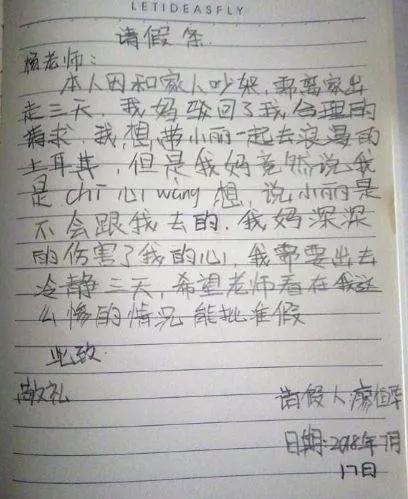 LETIDEASFLY
请假条
杨老师:
本人因和家人吵架,需离家出
走三天,我妈驳回了我合理的
请求,我想带小丽一起去浪漫的
土耳其,但是我妈竟然说我
是chī心wàng想,说小丽是
不会跟我去的.我妈深深
的伤害了我的心,我需要出去
冷静三天,希望老师看在我这
么惨的情况能批准假
此致
敬礼
请假人廖恒华
日期:2018年7月
17日